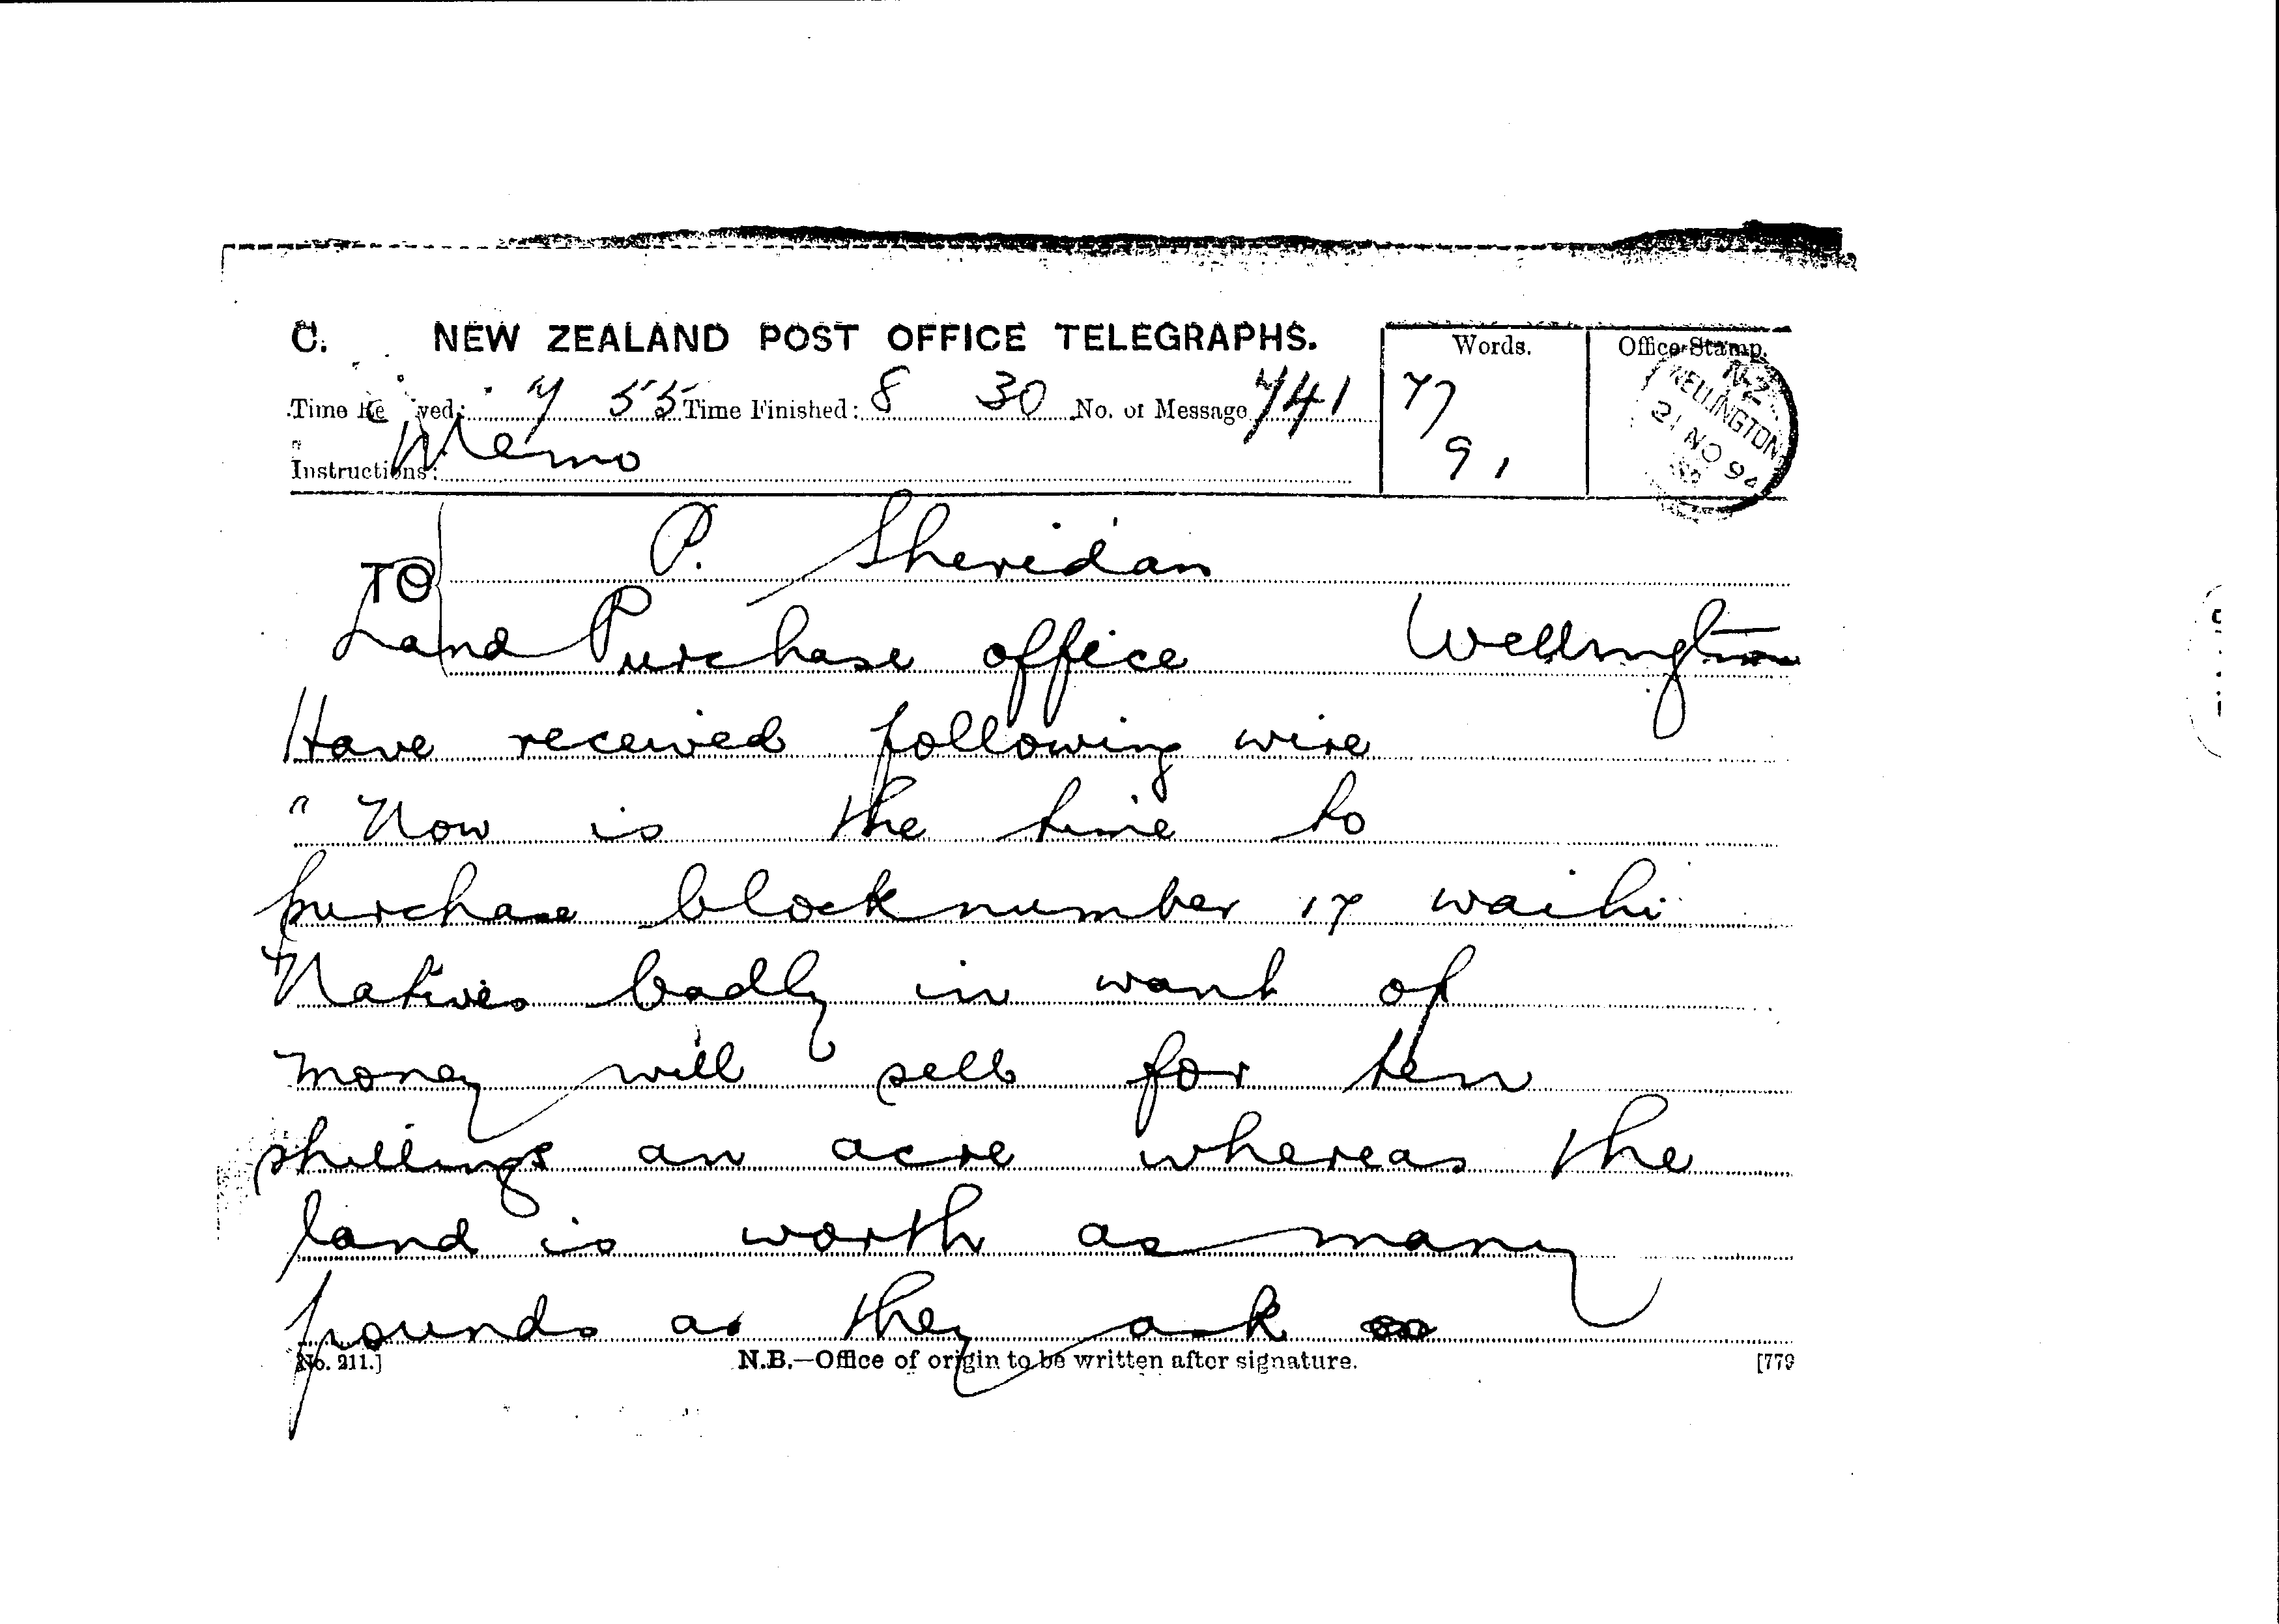 C. NEW ZEALAND POST OFFICE TELEGRAPHS.
Words.
Office Stamp.
Time Re ved: 7 55 Time Finished: 8 30 No. of Message 741
77
91
N.Z.
WELLINGTON
21 NO 94
Instructions: Memo
TO P. Sheridan
Land Purchase office Wellington
Have received following wire
" Now is the time to
purchase block number 17 waihi
Natives badly in want of
money will sell for ten
shillings an acre whereas the
land is worth as many
pounds as they ask
No. 211.] N.B.—Office of origin to be written after signature. [779